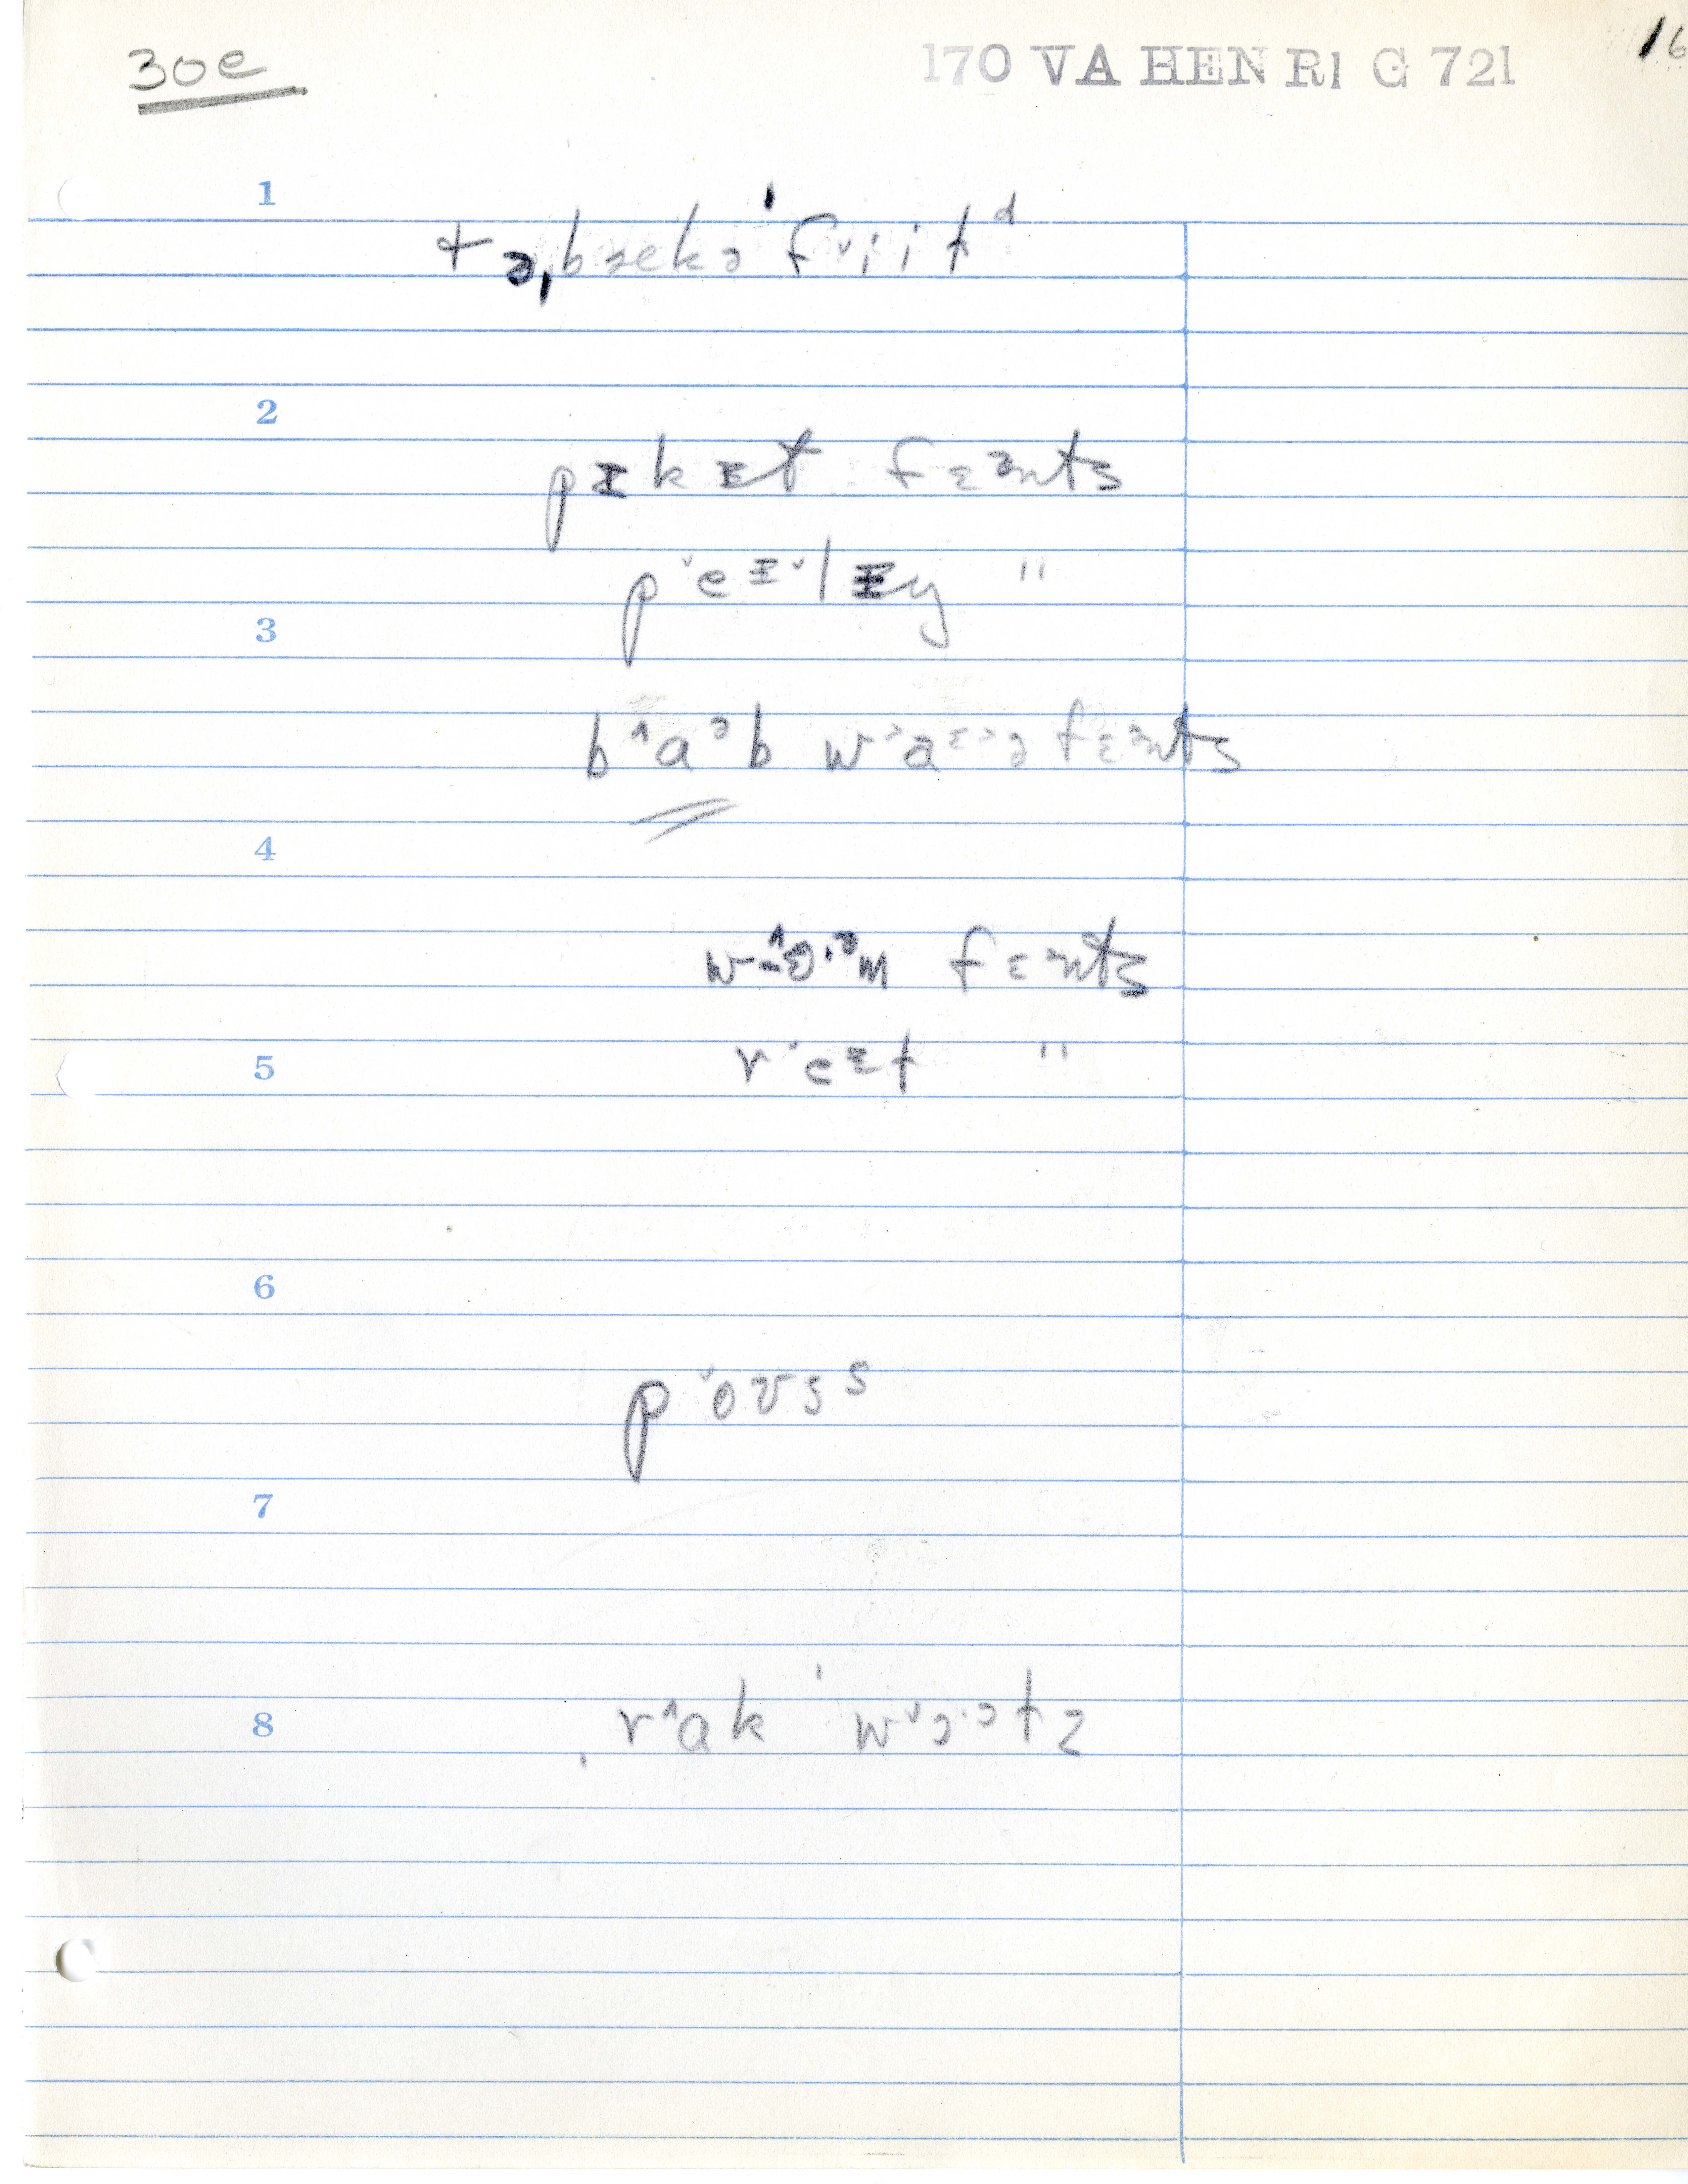 30e
170 VA HEN RI G 721
16
1
tə,bækə ˈfᵛiitᵈ
2
pɪkɪt fɛənts
pᵛeɪᵛlɪy "
3
b^aᵊb fɛənts
4
fɛənts
5
rᵛeɪt "
6
pᵛoʊsˢ
7
8
ˌr^ak ˈwᵛɔ.ɔtz